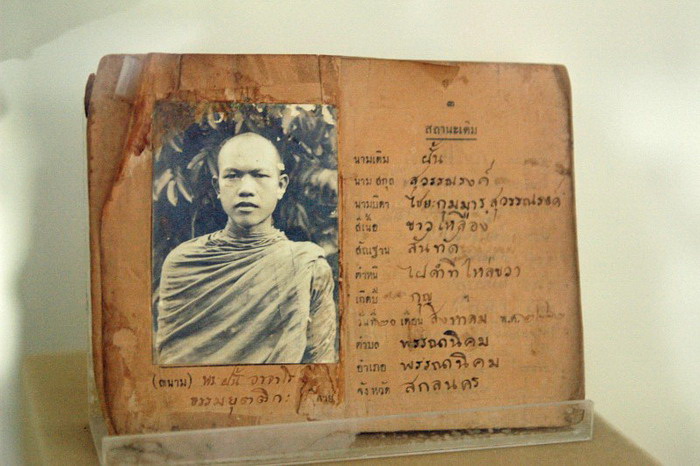 ๓
สถานะเดิม
นามเดิม ฝั้น
นามสกุล สุวรรณรงค์
นามบิดา ไชยะกุมมาร สุวรรณรงค์
สีเนื้อ ขาวเหลือง
สัณฐาน สันทัด
ตำหนิ ไฝดำที่ไหล่ขวา
เกิดปี กุญ
วันที่ ๒๐ เดือน สิงหาคม พ.ศ.
ตำบล พรรณานิคม
อำเภอ พรรณานิคม
จังหวัด สกลนคร
(ฉายานาม) พระ ฝั้น อาจาโร
ธรรมยุตติกะ